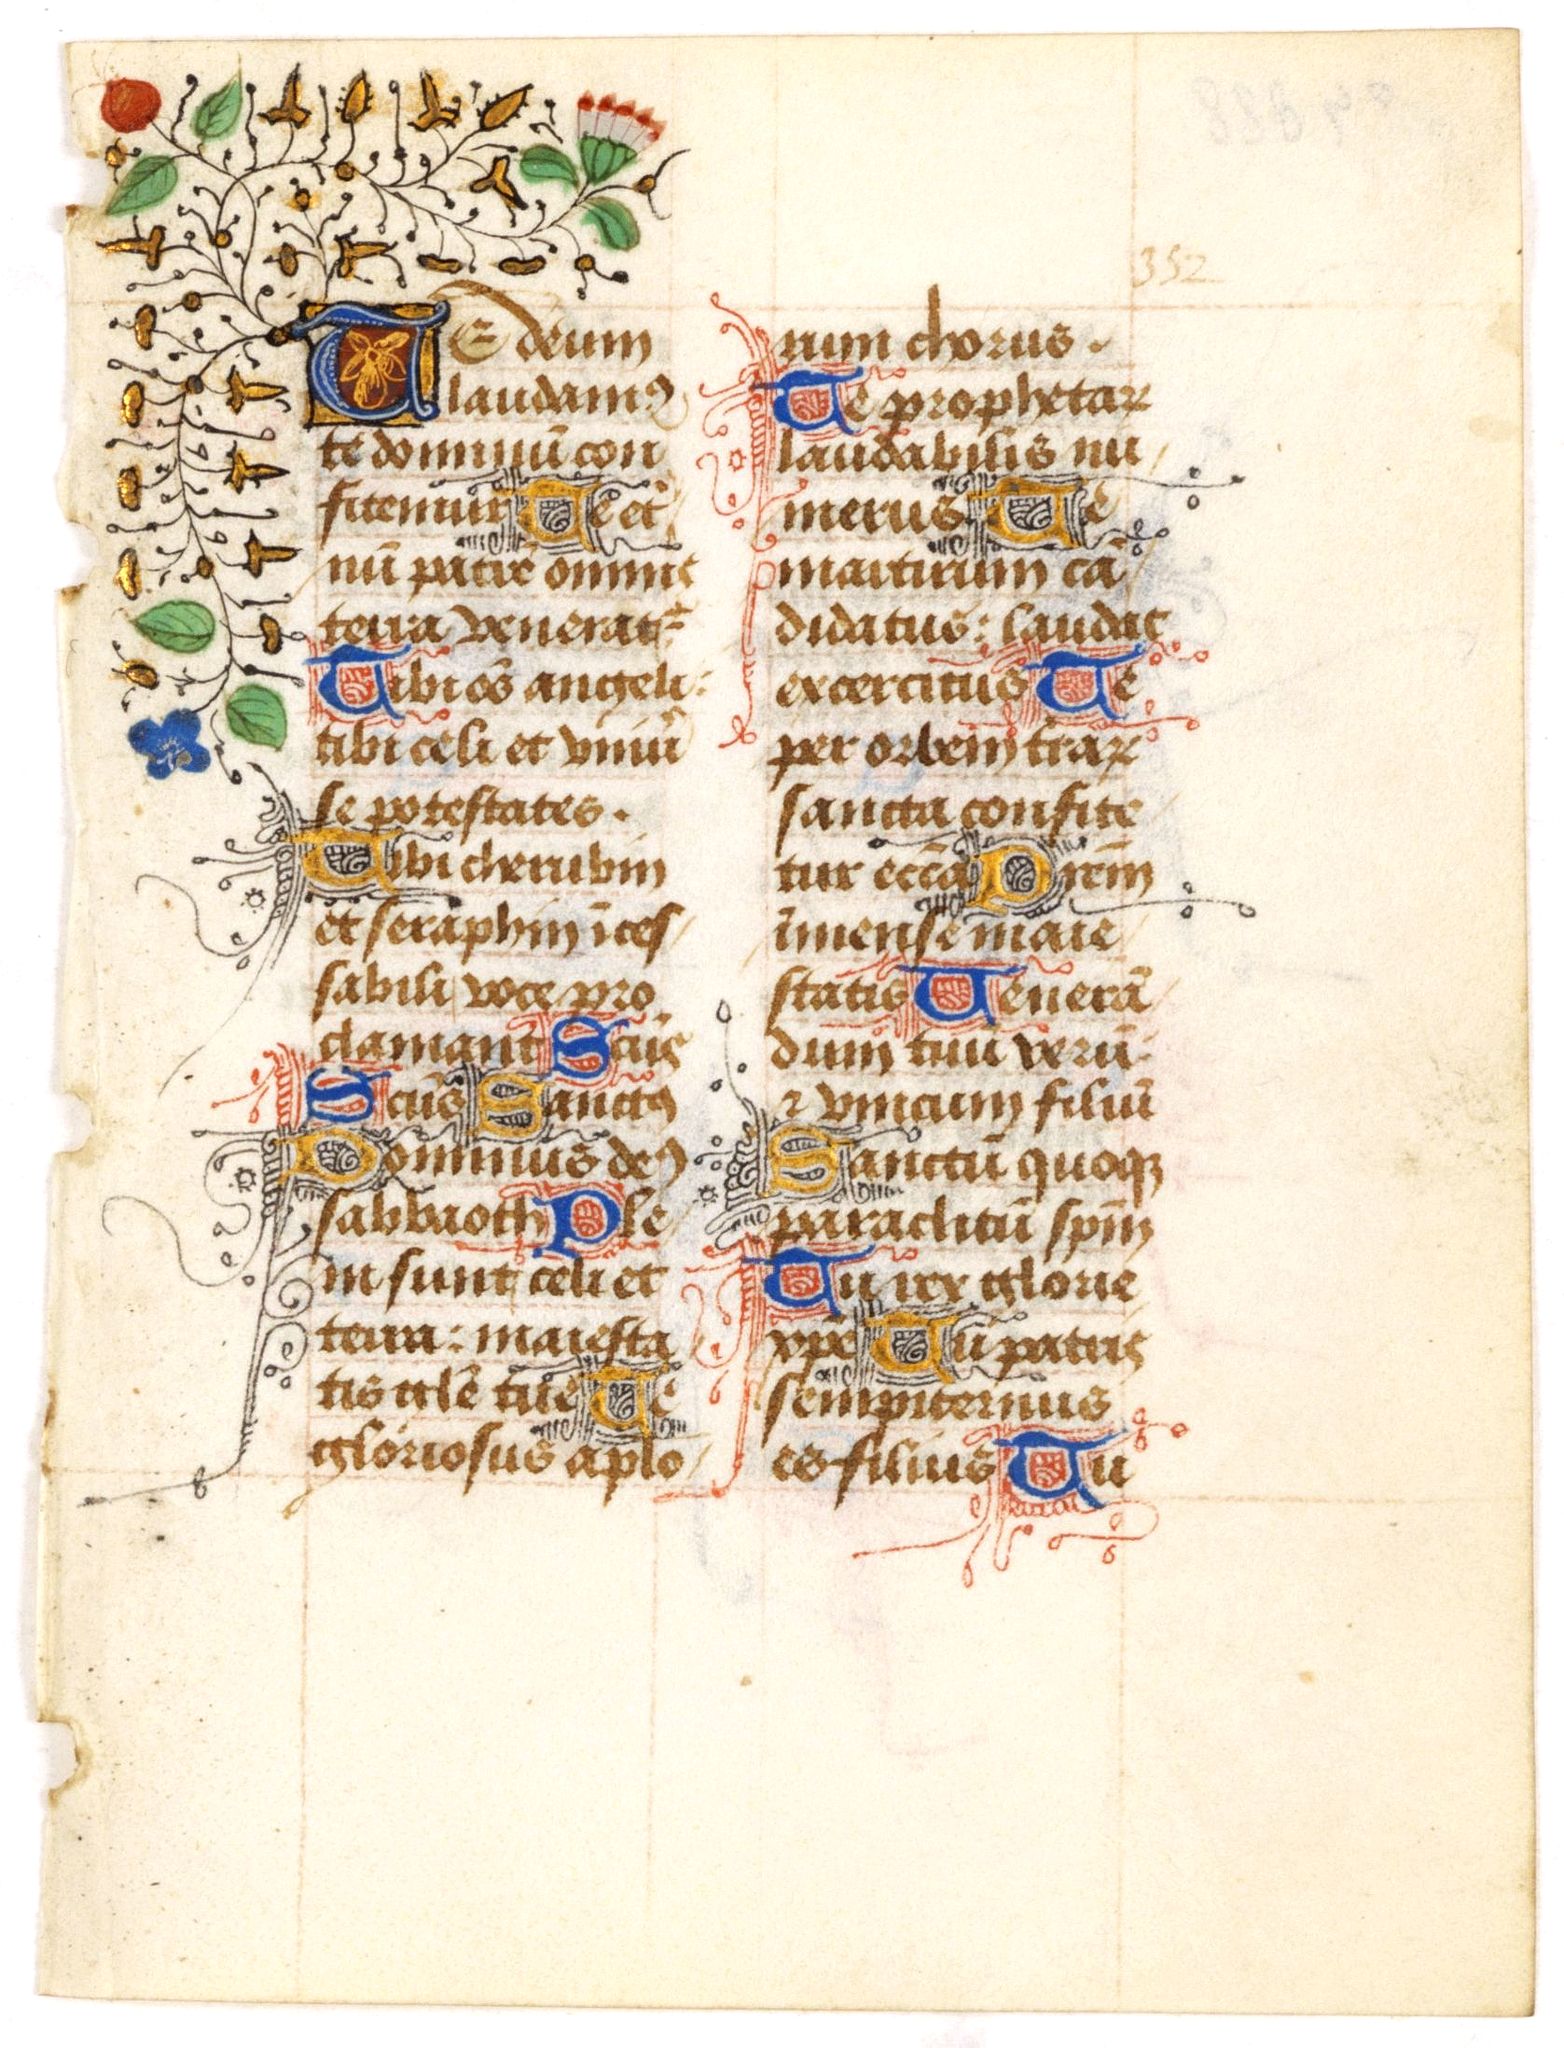 352
TE deum
laudamꝰ
te dominū con
fitemur Te et̾
nū patrē omnis
terra veneratᷣ
Tibi oēs angeli:
tibi celi et vniũ
se potestates.
Tibi cherubin
et seraphin īces
sabili voce pro
clamant Scūs
Scūs Sanctꝰ
Dominus deꝰ
sabbaoth Ple
ni sunt celi et
terra: maiesta
tis glē tue Te
gloriosus aplo
rum chorus.
Te prophetaꝝ
laudabilis nu
merus Te
martirum cā
didatus: laudat
excercitus Te
per orbem t̃raꝝ
sancta confite
tur eccā Prēm
īmense maie
statis Uenerā
dum tuū verū
⁊ vnicum filiū
Sanctū quoqꝫ
paraclitū spm̄
Tu rex glorie
xpē Tu patris
sempiternus
es filius Tu